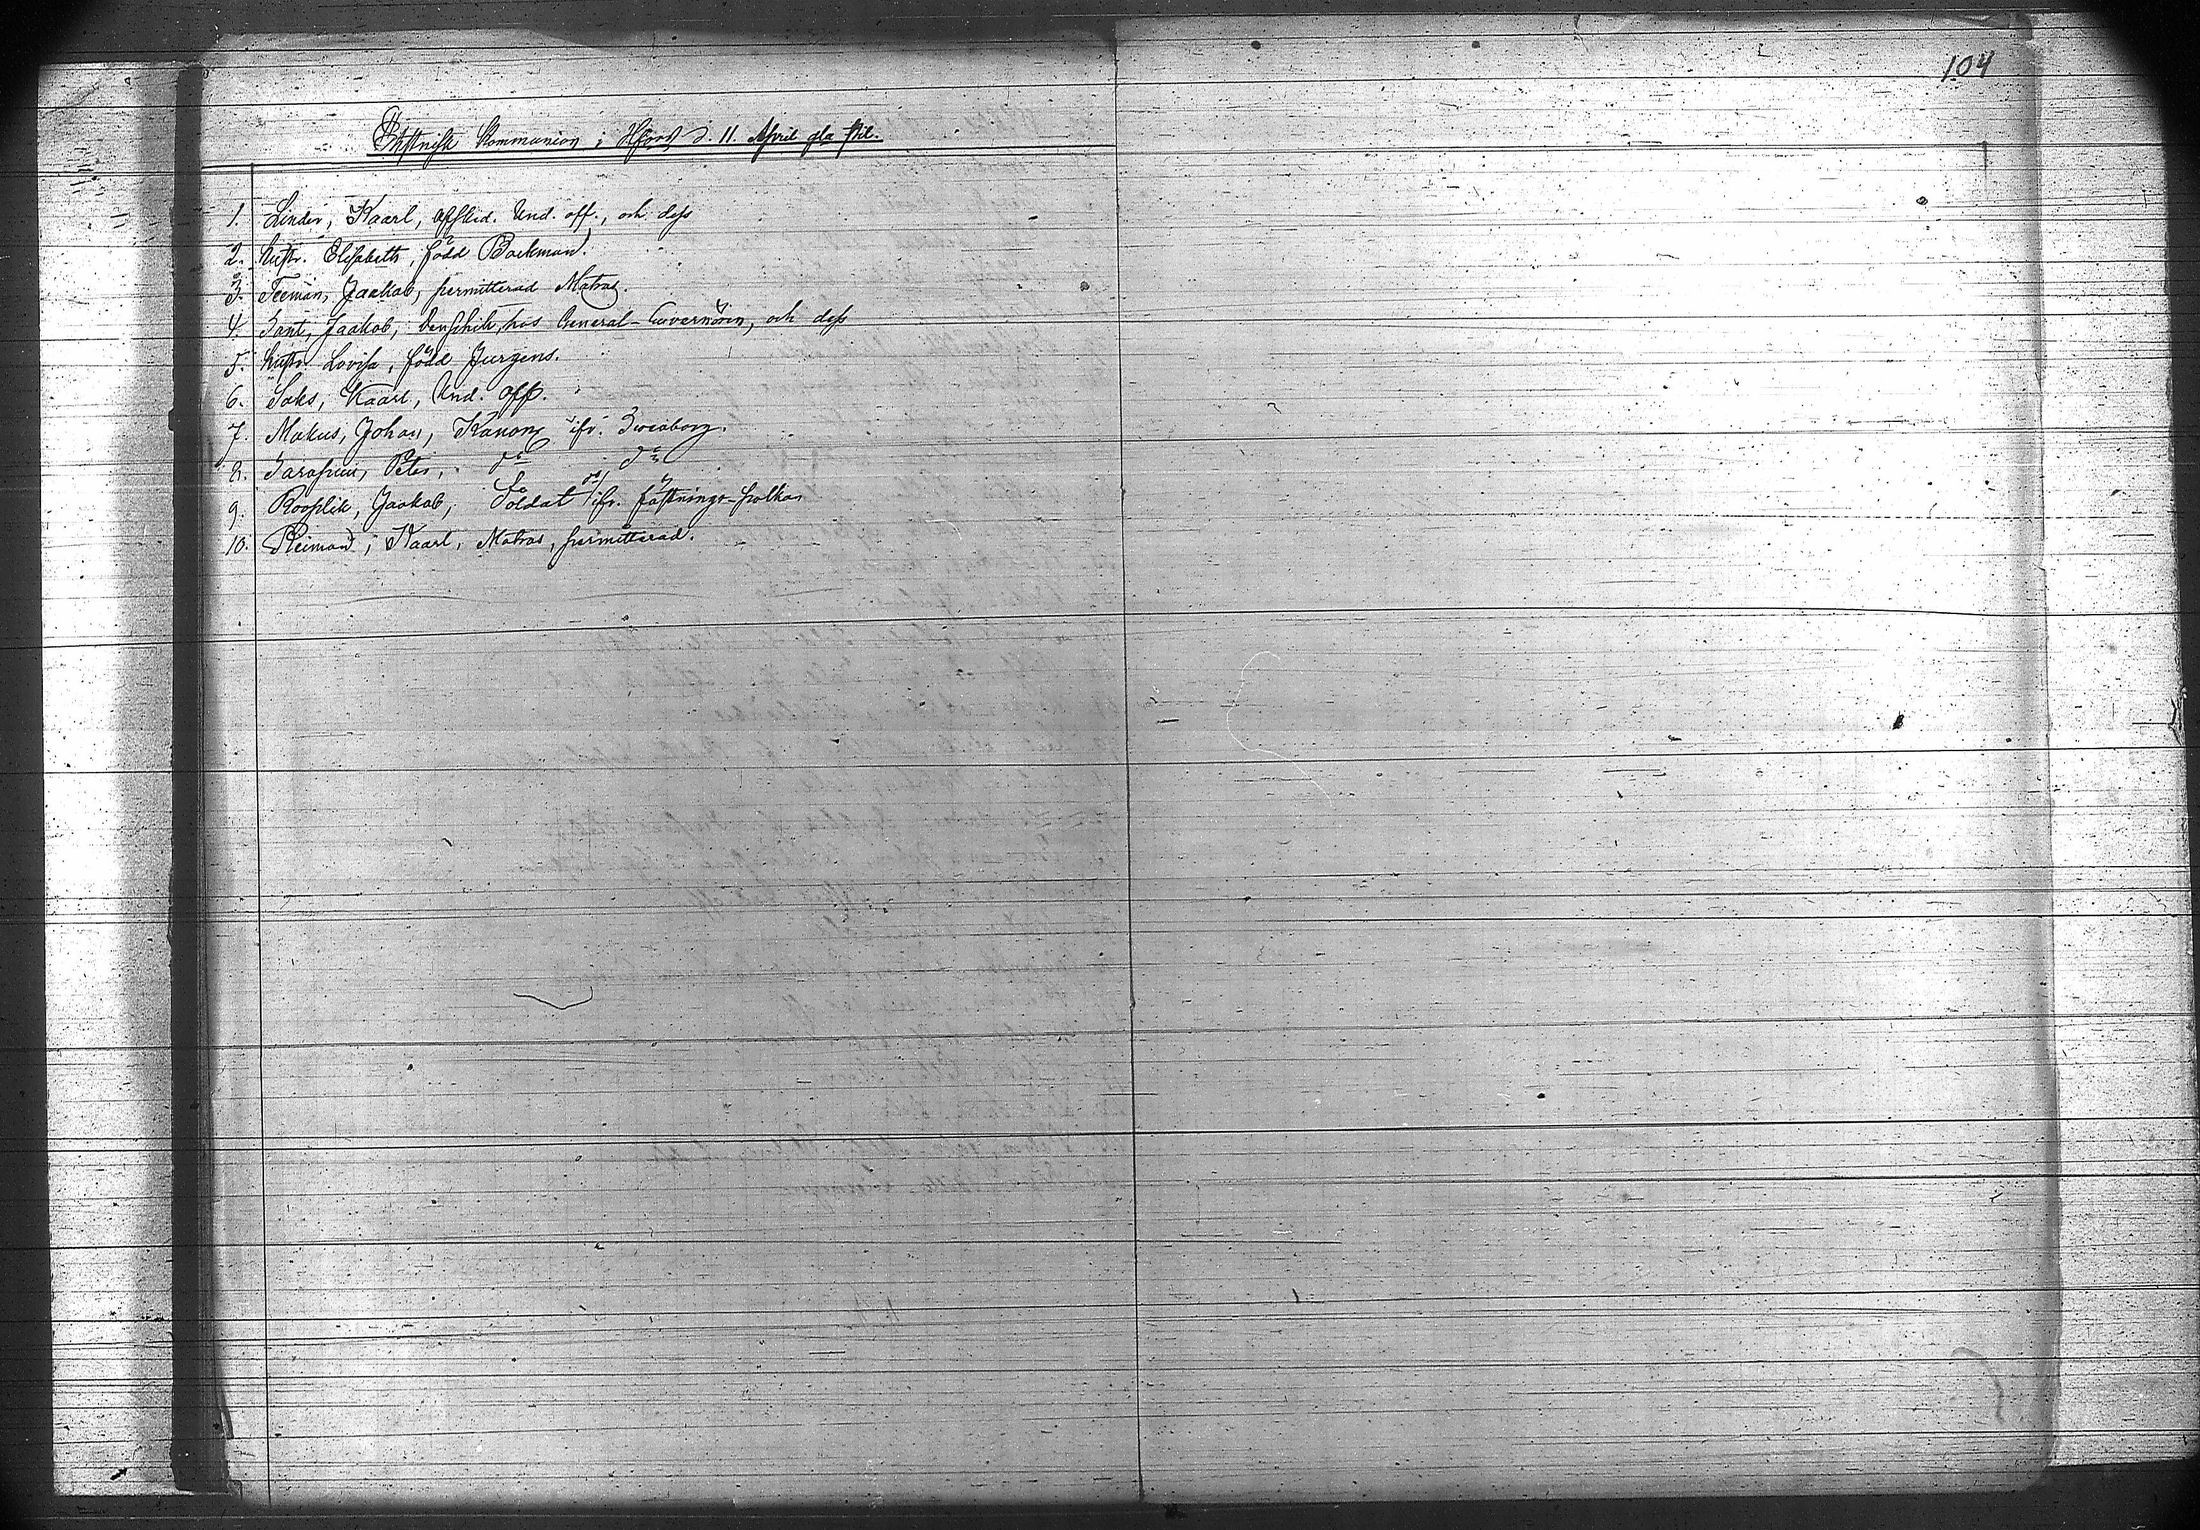 104
Ehstnisk Kommunion i Hfors d. 11. April gla stil.
1. Linder, Kaarl, afsked. Und. off., och dess
2. hustr. Elisabeth, född Backman.
3. Teeman, Jaakob, permitterad Matros.
4. Sant, Jaakob, Denschik hos General-Guvernören, och dess
5. hustr. Lovisa, född Jurgens.
6. Saks, Kaarl, Und. off.
7. Makus, Johan, Kanonr ifr. Sveaborg.
8. Peter, do do
9. Rooplik, Jaakob, Soldat ifr. fästnings-
10. Reimand, Kaarl, Matros, permitterad.